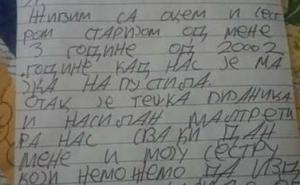 ЖИВИМ СА ОЦЕМ И СЕСТ
РОМ СТАРИЈОМ ОД МЕНЕ
3 ГОДИНЕ ОД 2000 2
ГОДИНЕ КАД НАС ЈЕ МА
ЈКА НАПУСТИЛА.
ОТАЦ ЈЕ ТЕШКА ПИЈАНИЦА
И НАСИЛАН МАЛТРЕТИ
РА НАС СВАКИ ДАН
МЕНЕ И МОЈУ СЕСТРУ
КОЈИ НЕМОЖЕМО ДА ИЗД